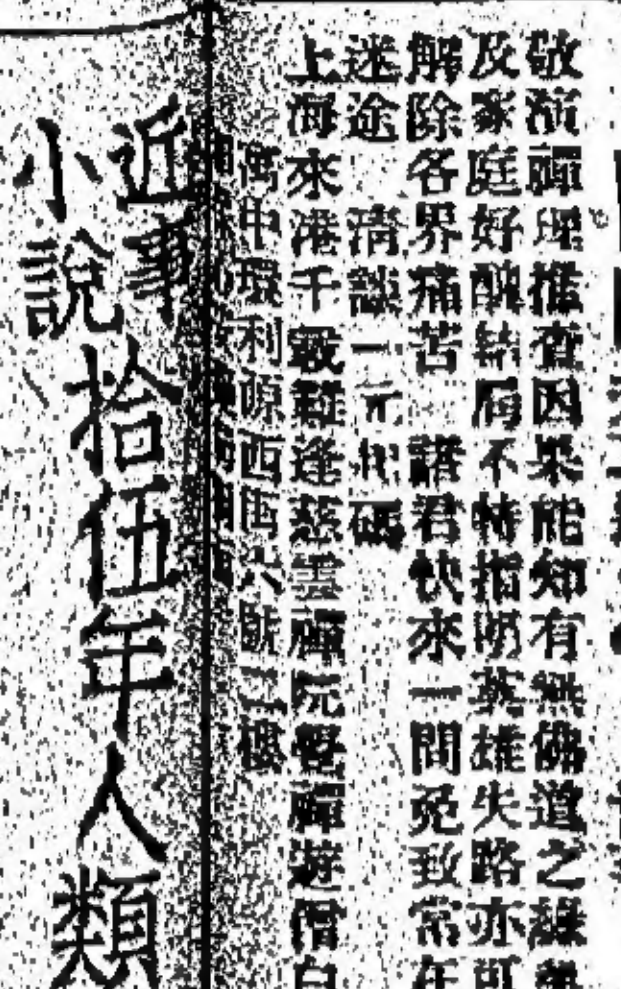 敬演禪理推查因果能知有無佛道之緣
及家庭好醜結局不特指明英雄失路亦可
解除各界痛苦 諸君快來一問免致常在
迷途 清談一元代碼
上海來港千載難逢慈雲禪院覺禪遊僧白
寓中環利源西街六號三樓
近事
小說
拾伍年人類